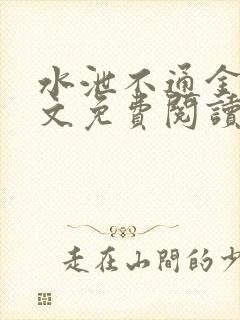 水泄不通全
文免費閱讀
走在山間的少